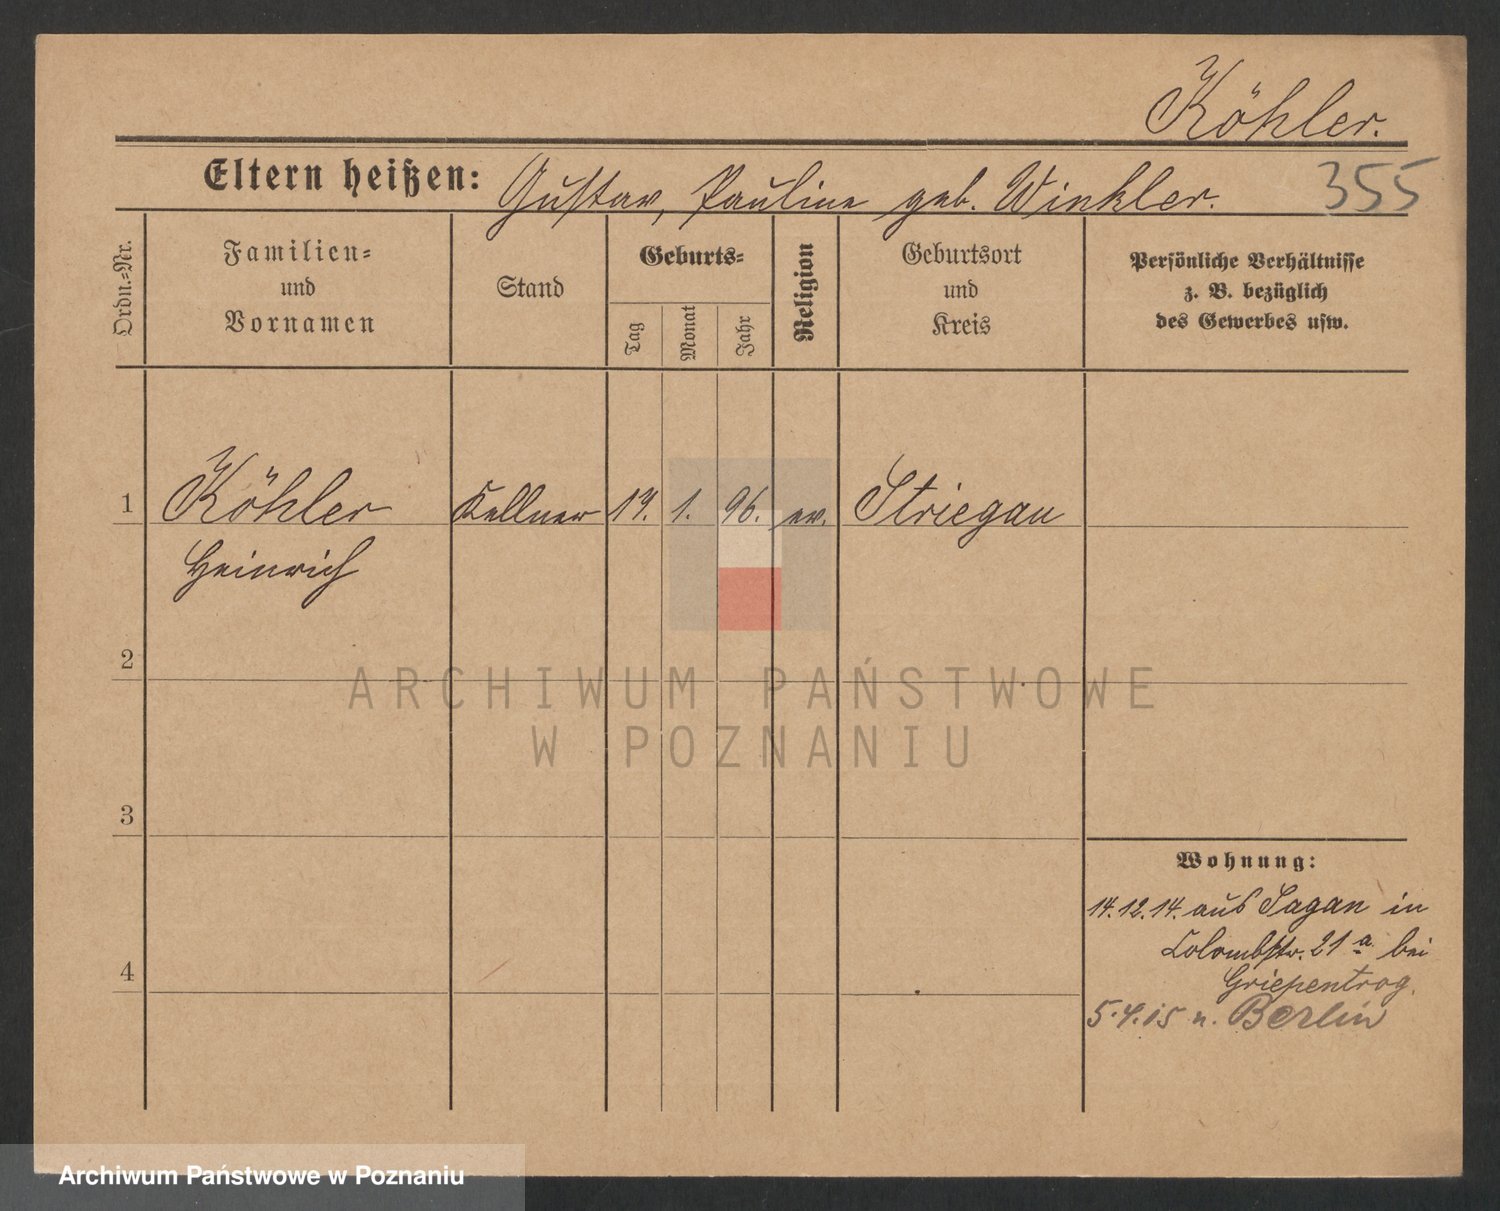 Köhler.
Eltern heißen: Gustav, Pauline geb. Winkler. 355
Ordn.=Nr.
Familien=
und
Vornamen
Stand
Geburts=
Tag
Monat
Jahr
Religion
Geburtsort
und
Kreis
Persönliche Verhältnisse
z. B. bezüglich
des Gewerbes usw.
1 Köhler Kellner 1. 96. ev. Striegau
Heinrich
2
ARCHIWUM PAŃSTWOWE
W POZNANIU
3
Wohnung:
14.12.14. aus Sagan in
Colombstr. 21 a bei
4
Griepentrog.
5.4.15 n. Berlin
Archiwum Państwowe w Poznaniu